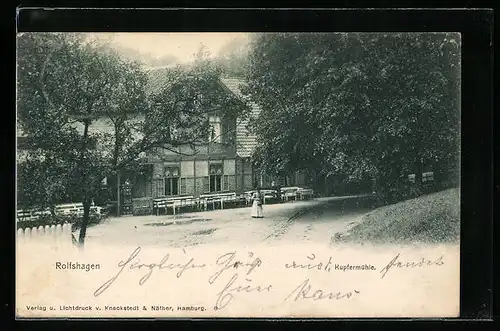 Rolfshagen Herzliche Grüße aus Kupfermühle. sendet
Verlag u. Lichtdruck v. Knackstedt & Näther, Hamburg.